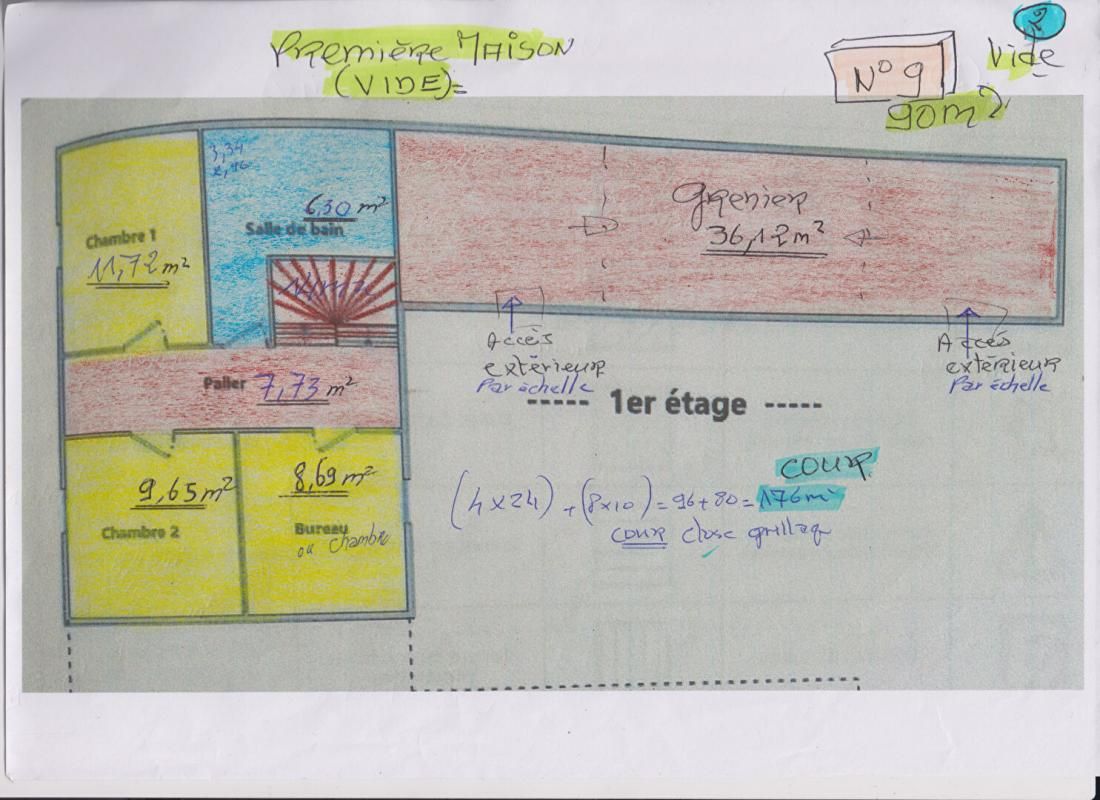 2
PREMIÈRE MAISON
Vide
(VIDE)=
N° 9
90m²
3,34
6,30 m²
Salle de bain
Grenier
36,12 m²
Chambre 1
11,72 m²
Accès
extérieur
Par échelle
Accès
extérieur
Par échelle
Palier 7,73 m²
----- 1er étage -----
9,65 m²
8,69 m²
COUR
(4x24) + (8x10) = 96+80= 176m²
cour close grillag
Chambre 2
Bureau
ou chambre